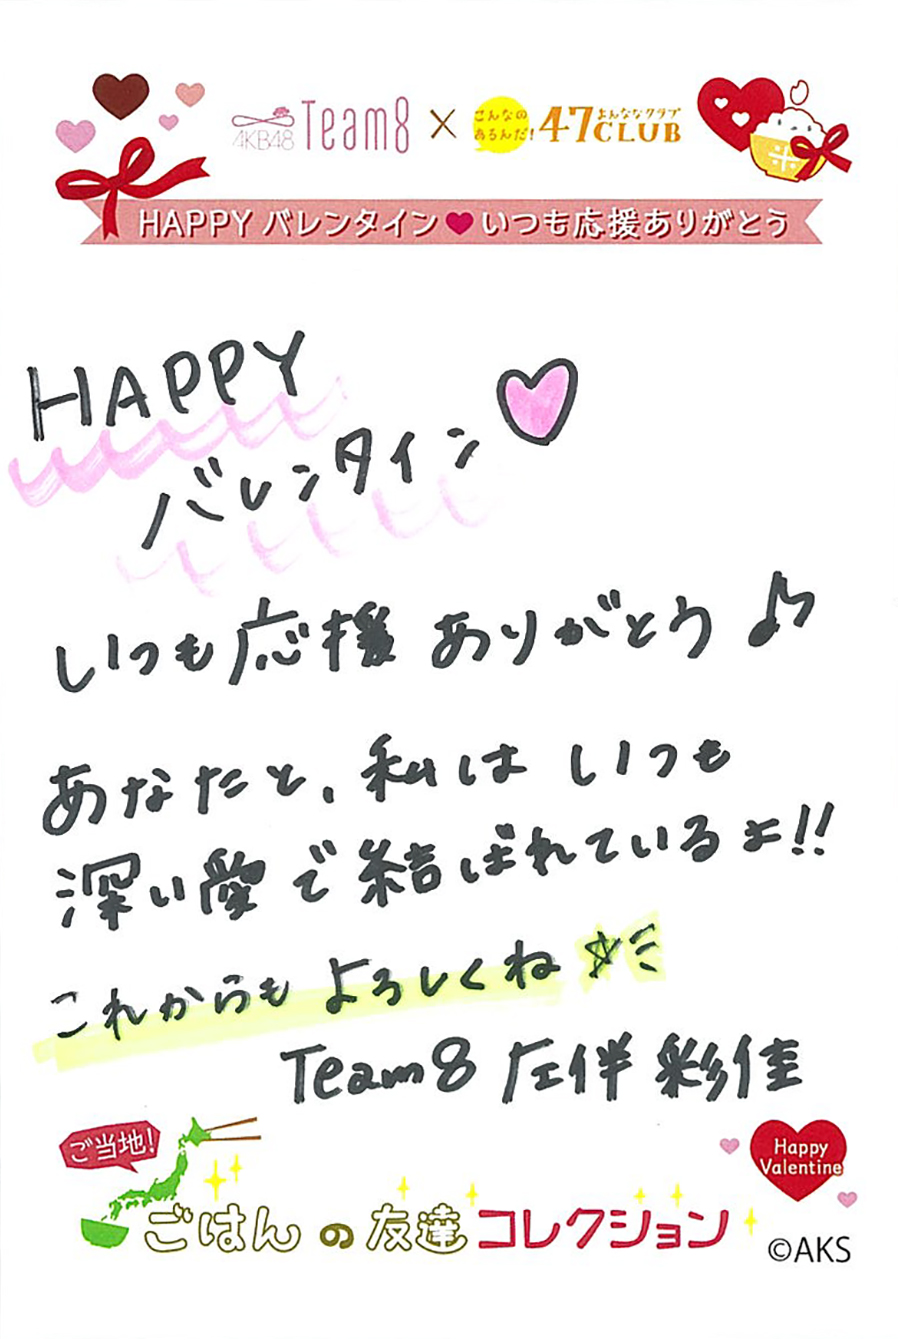 AKB48 Team8 × こんなのあるんだ! 47CLUB よんななクラブ
HAPPY バレンタイン♥いつも応援ありがとう
HAPPY
バレンタイン♡
いつも応援ありがとう♫
あなたと、私はいつも
深い愛で結ばれているよ!!
これからもよろしくね☆
Team8 左伴 彩佳
ご当地!
Happy
Valentine
ごはんの友達コレクション
©AKS